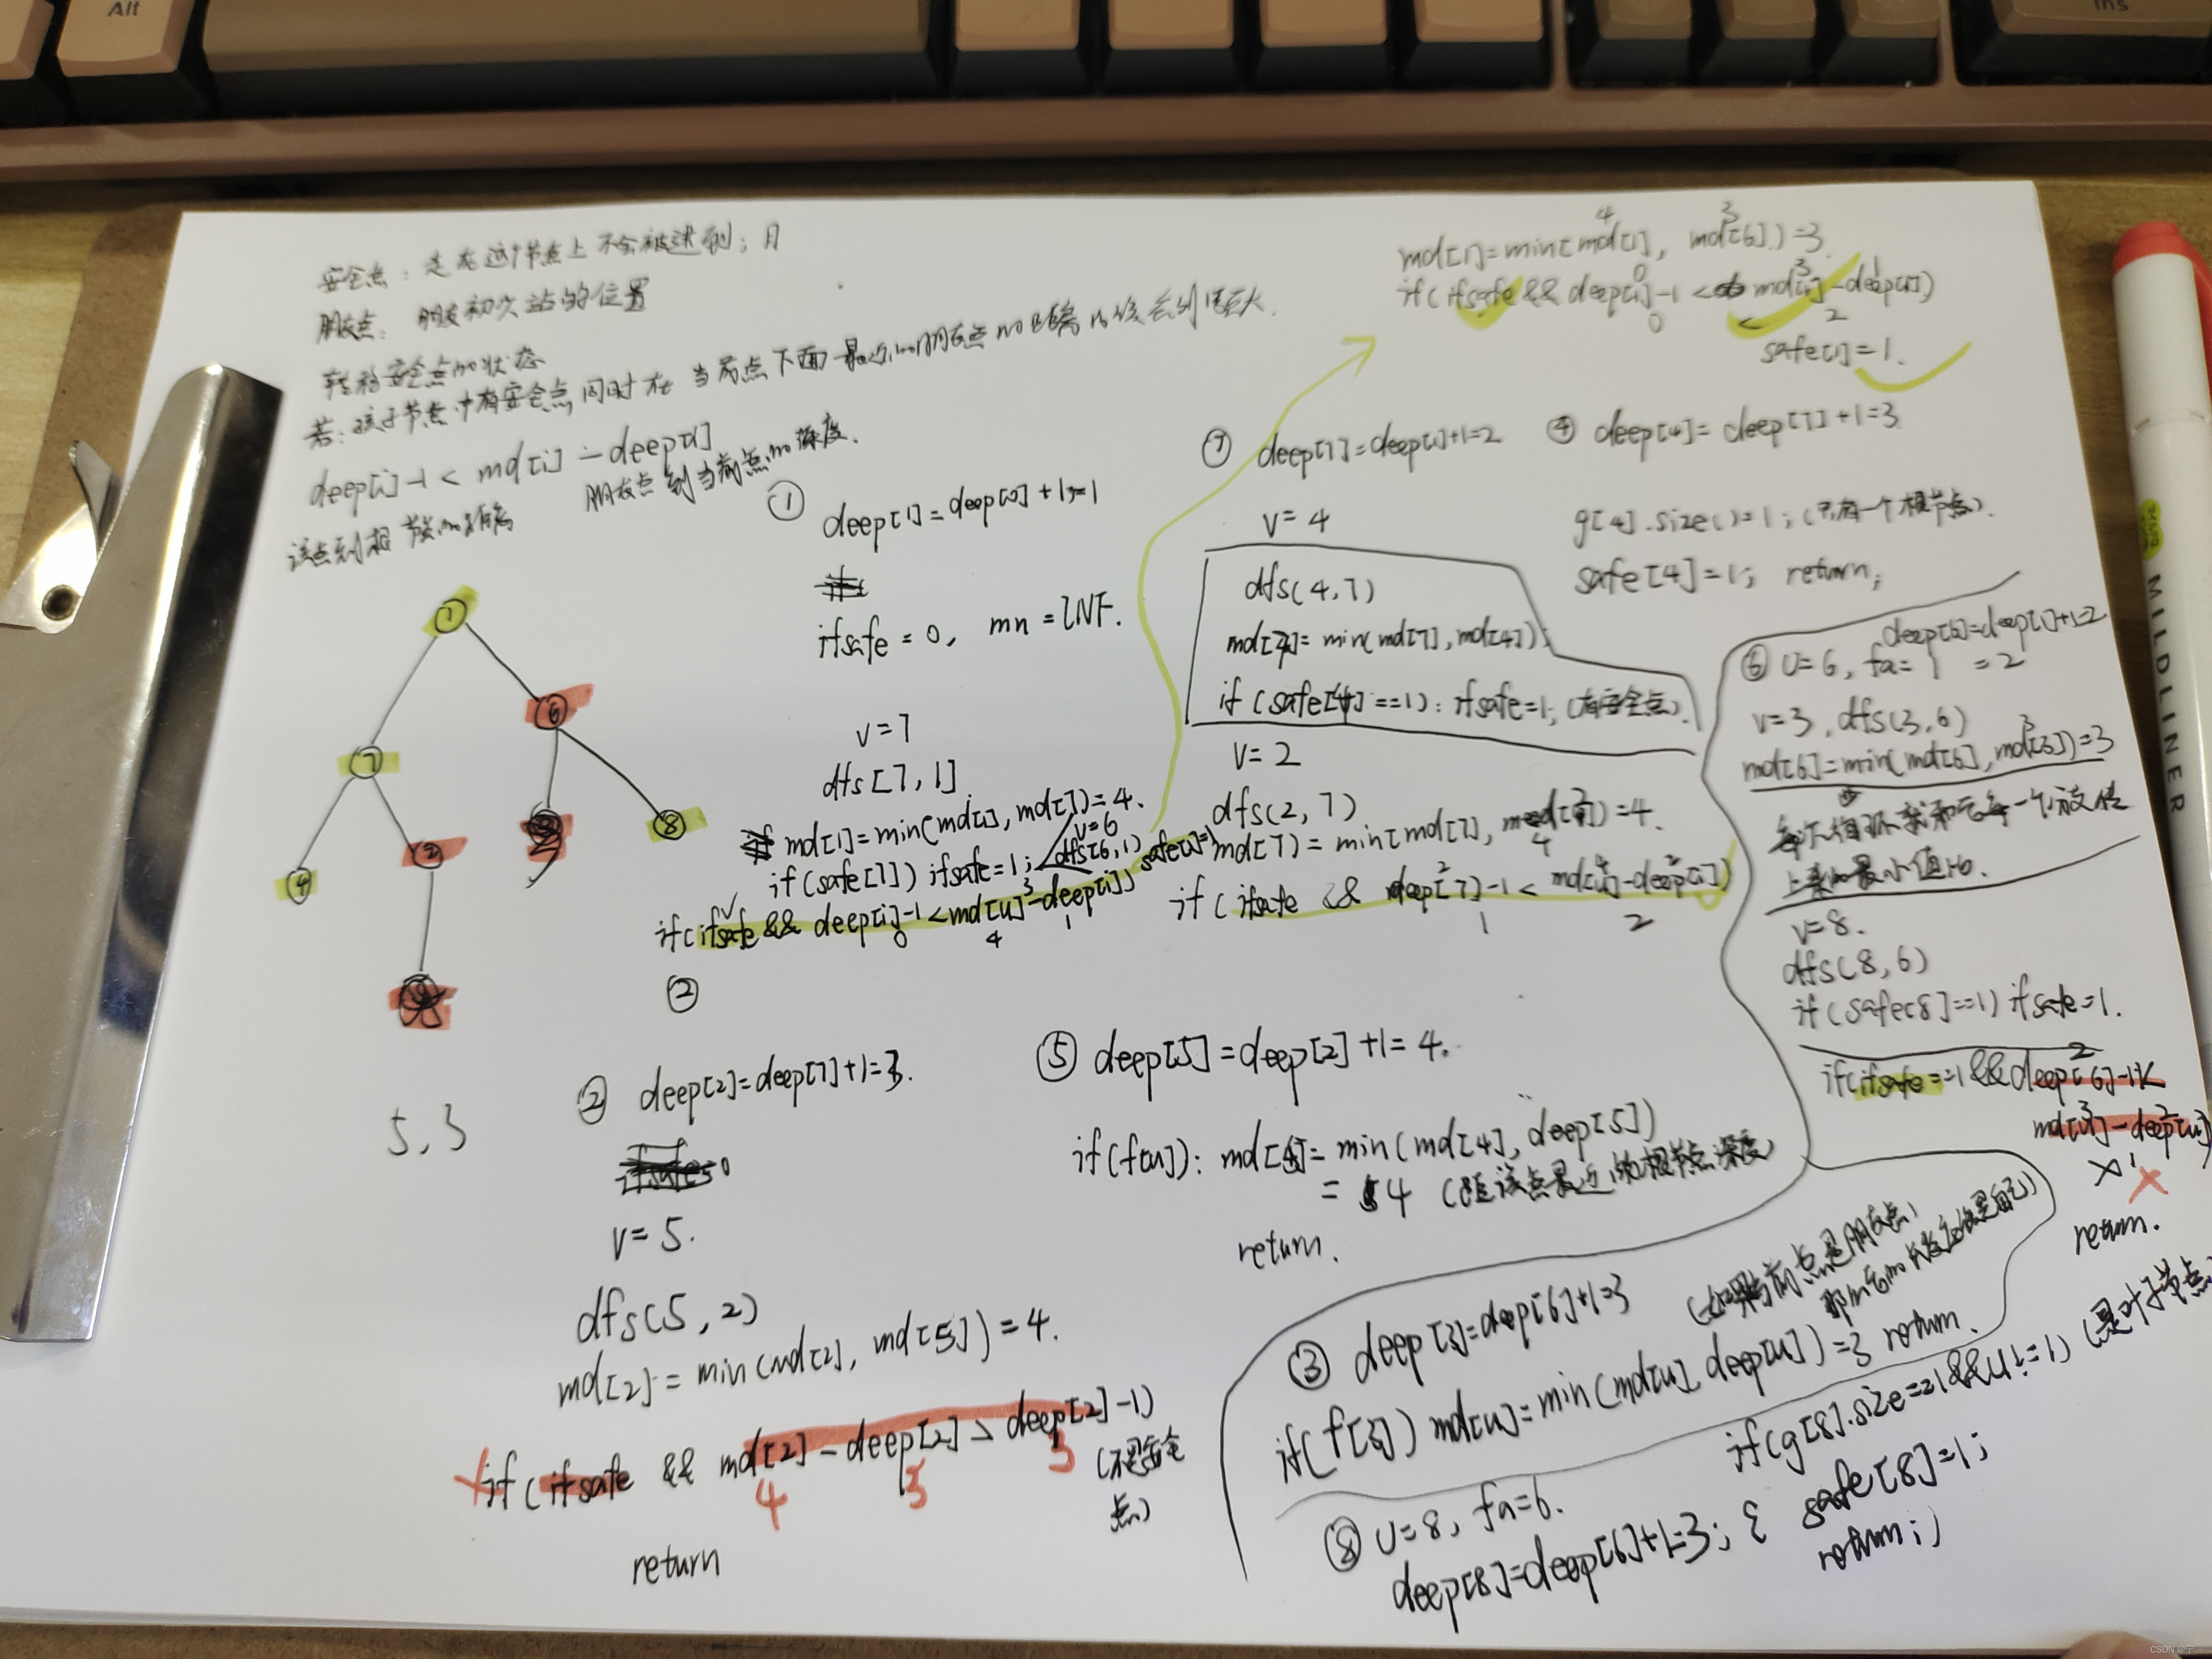 Alt
Ins
安全点：走在这个节点上不会被逮到；且
朋友点：朋友初次站的位置
转移安全点的状态
若：孩子节点中有安全点同时在当前点下面最近的朋友点的距离
deep[i]-1 < md[i] - deep[i]
该点到根节点的距离
朋友点到当前点的深度.
①
deep[1]=deep[0]+1=1
ifsafe=0, mn=INF.
v=7
dfs[7,1]
md[1]=min(md[1], md[7])=4.
if(safe[7]) ifsafe=1;
v=6
dfs(6,1)
safe[1]=1
if(ifsafe && deep[i]-1<md[u]-deep[i])
3
0
4
1
②
1
7
6
4
2
8
5,3
② deep[2]=deep[7]+1=3.
v=5.
dfs(5,2)
md[2]=min(md[2], md[5])=4.
if(ifsafe && md[2]-deep[2]>deep[2]-1)
4
3
3
(不是安全
点)
return
⑤ deep[5]=deep[2]+1=4.
if(f[u]): md[4]=min(md[4], deep[5])
=4 (距该点最近的根节点深度)
return.
md[1]=min(md[1], md[6])=3
4
3
if(ifsafe && deep[1]-1< md[1]-deep[1])
0
3
1
0
2
safe[1]=1.
⑦ deep[7]=deep[1]+1=2
v=4
dfs(4,7)
md[7]=min(md[7],md[4])
if(safe[4]==1): ifsafe=1; (有安全点).
v=2
dfs(2,7)
md[7]=min(md[7], md[2])=4.
4
if(ifsafe && deep[7]-1< md[u]-deep[i])
2
4
2
1
2
④ deep[4]=deep[7]+1=3
g[4].size()=1; (只有一个根节点).
safe[4]=1; return;
deep[6]=deep[1]+1=2
⑥ u=6, fa=1 =2
v=3, dfs(3,6)
md[6]=min(md[6], md[3])=3
3
上来的最小值
v=8.
dfs(8,6)
if(safe[8]==1) ifsafe=1.
if(ifsafe==1&&deep[6]-1<
2
md[u]-deep[u])
3
2
1
return.
③ deep[3]=deep[6]+1=3
(如果当前点是朋友点,
if(f[3]) md[u]=min(md[u], deep[u])=3 return.
⑧ u=8, fa=6.
deep[8]=deep[6]+1=3;
if(g[8].size==1&&u!=1) (是叶子节点
{ safe[8]=1;
return;}
MILDLINER
CSDN @宁一